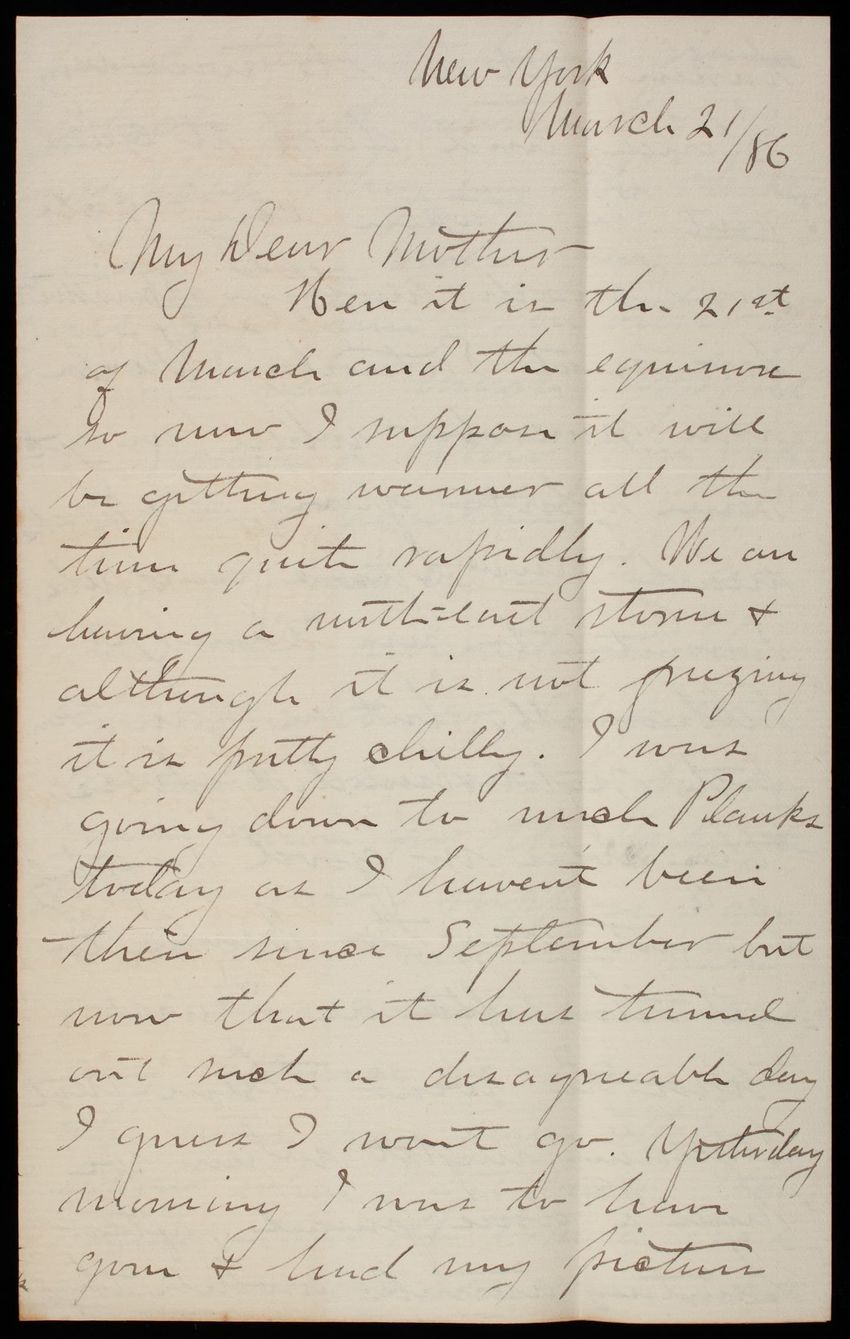 New York
March 21/86
My Dear Mother
Here it is the 21st
of March and the equinox
so now I suppose it will
be getting warmer all the
time quite rapidly. We are
having a north-east storm &
although it is not freezing
it is pretty chilly. I was
going down to Planks
today as I haven't been
there since September but
now that it has turned
out such a disagreeable day
I guess I wont go. Yesterday
morning I was to have
gone & had my picture